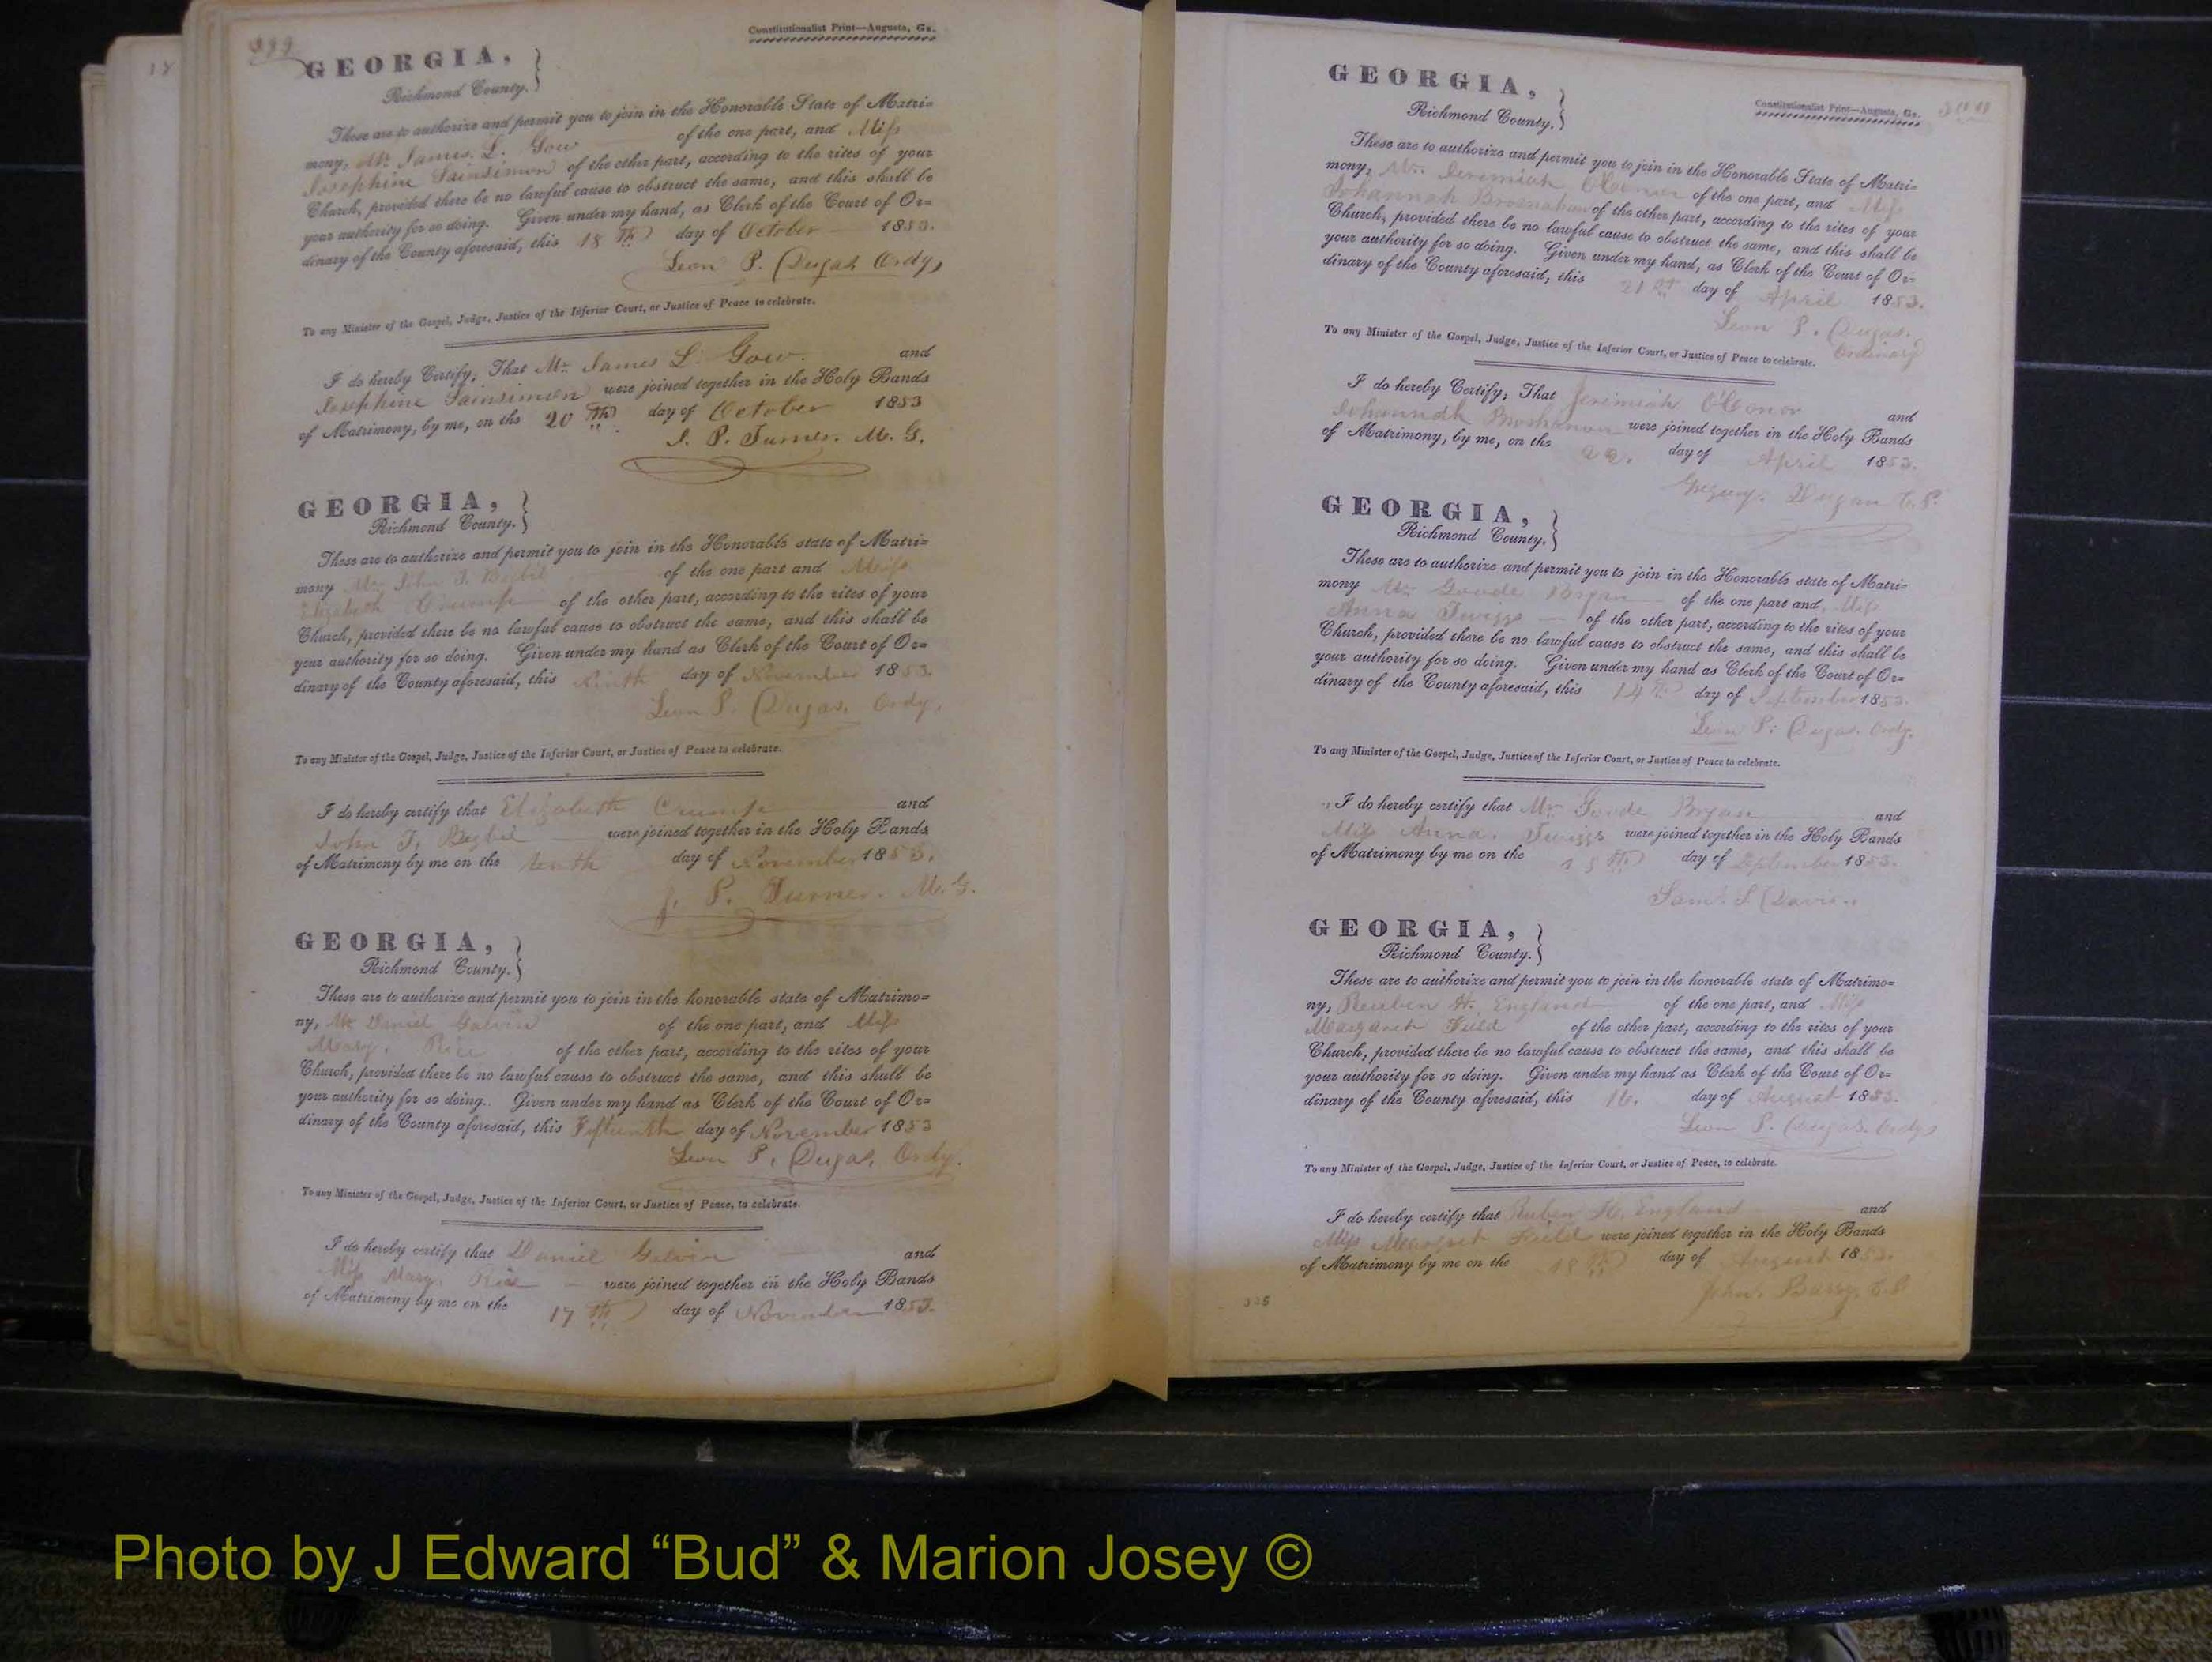 Constitutionalist Print—Augusta, Ga.
GEORGIA,
Richmond County.
These are to authorize and permit you to join in the Honorable State of Matri=
mony, Mr. James L. Gow of the one part, and Miss
Josephine Sainsimon of the other part, according to the rites of your
Church, provided there be no lawful cause to obstruct the same, and this shall be
your authority for so doing. Given under my hand, as Clerk of the Court of Or=
dinary of the County aforesaid, this 18th day of October 1853.
Leon P. Dugas Ordy,
To any Minister of the Gospel, Judge, Justice of the Inferior Court, or Justice of Peace to celebrate.
I do hereby Certify, That Mr. James L. Gow. and
Josephine Sainsimon were joined together in the Holy Bands
of Matrimony, by me, on the 20th day of October 1853
J. P. Turner. M. G.
GEORGIA,
Richmond County.
These are to authorize and permit you to join in the Honorable state of Matri=
mony Mr. John T. of the one part and Miss
Elizabeth Crump of the other part, according to the rites of your
Church, provided there be no lawful cause to obstruct the same, and this shall be
your authority for so doing. Given under my hand as Clerk of the Court of Or=
dinary of the County aforesaid, this Ninth day of November 1853.
Leon P. Dugas, Ordy.
To any Minister of the Gospel, Judge, Justice of the Inferior Court, or Justice of Peace to celebrate.
I do hereby certify that Elizabeth Crump and
John T. were joined together in the Holy Bands
of Matrimony by me on the tenth day of November 1853.
J. P. Turner. M. G.
GEORGIA,
Richmond County.
These are to authorize and permit you to join in the honorable state of Matrimo=
ny, Mr Daniel Galvin of the one part, and Miss
Mary. Rice of the other part, according to the rites of your
Church, provided there be no lawful cause to obstruct the same, and this shall be
your authority for so doing. Given under my hand as Clerk of the Court of Or=
dinary of the County aforesaid, this Fifteenth day of November 1853
Leon P. Dugas, Ordy.
To any Minister of the Gospel, Judge, Justice of the Inferior Court, or Justice of Peace, to celebrate.
I do hereby certify that Daniel Galvin and
Miss Mary. Rice were joined together in the Holy Bands
of Matrimony by me on the 17th day of November 1853.
GEORGIA,
Richmond County.
Constitutionalist Print—Augusta, Ga.
These are to authorize and permit you to join in the Honorable State of Matri=
mony, Mr. Jeremiah O'Conor of the one part, and Miss
Johannah Brosnahan of the other part, according to the rites of your
Church, provided there be no lawful cause to obstruct the same, and this shall be
your authority for so doing. Given under my hand, as Clerk of the Court of Or=
dinary of the County aforesaid, this 21st day of April 1853.
Leon P. Dugas.
Ordinary
To any Minister of the Gospel, Judge, Justice of the Inferior Court, or Justice of Peace to celebrate.
I do hereby Certify, That Jeremiah O'Conor and
Johannah were joined together in the Holy Bands
of Matrimony, by me, on the 22. day of April 1853.
Gregory. Duggan C. P.
GEORGIA,
Richmond County.
These are to authorize and permit you to join in the Honorable state of Matri=
mony Mr. Goode Bryan of the one part and, Miss
Anna Twiggs of the other part, according to the rites of your
Church, provided there be no lawful cause to obstruct the same, and this shall be
your authority for so doing. Given under my hand as Clerk of the Court of Or=
dinary of the County aforesaid, this 14th day of September 1853.
Leon P. Dugas. Ordy.
To any Minister of the Gospel, Judge, Justice of the Inferior Court, or Justice of Peace to celebrate.
I do hereby certify that Mr Goode Bryan and
Miss Anna. Twiggs were joined together in the Holy Bands
of Matrimony by me on the 15th day of September 1853.
Saml. S. Davis.
GEORGIA,
Richmond County.
These are to authorize and permit you to join in the honorable state of Matrimo=
ny, Reuben H. England of the one part, and Miss
Margaret Field of the other part, according to the rites of your
Church, provided there be no lawful cause to obstruct the same, and this shall be
your authority for so doing. Given under my hand as Clerk of the Court of Or=
dinary of the County aforesaid, this 16. day of August 1853.
Leon P. Dugas. Ordy
To any Minister of the Gospel, Judge, Justice of the Inferior Court, or Justice of Peace, to celebrate.
I do hereby certify that Ruben H. England and
Miss Margaret Field were joined together in the Holy Bands
of Matrimony by me on the 18th day of August 1853.
John. Barry. C. P.
Photo by J Edward “Bud” & Marion Josey ©